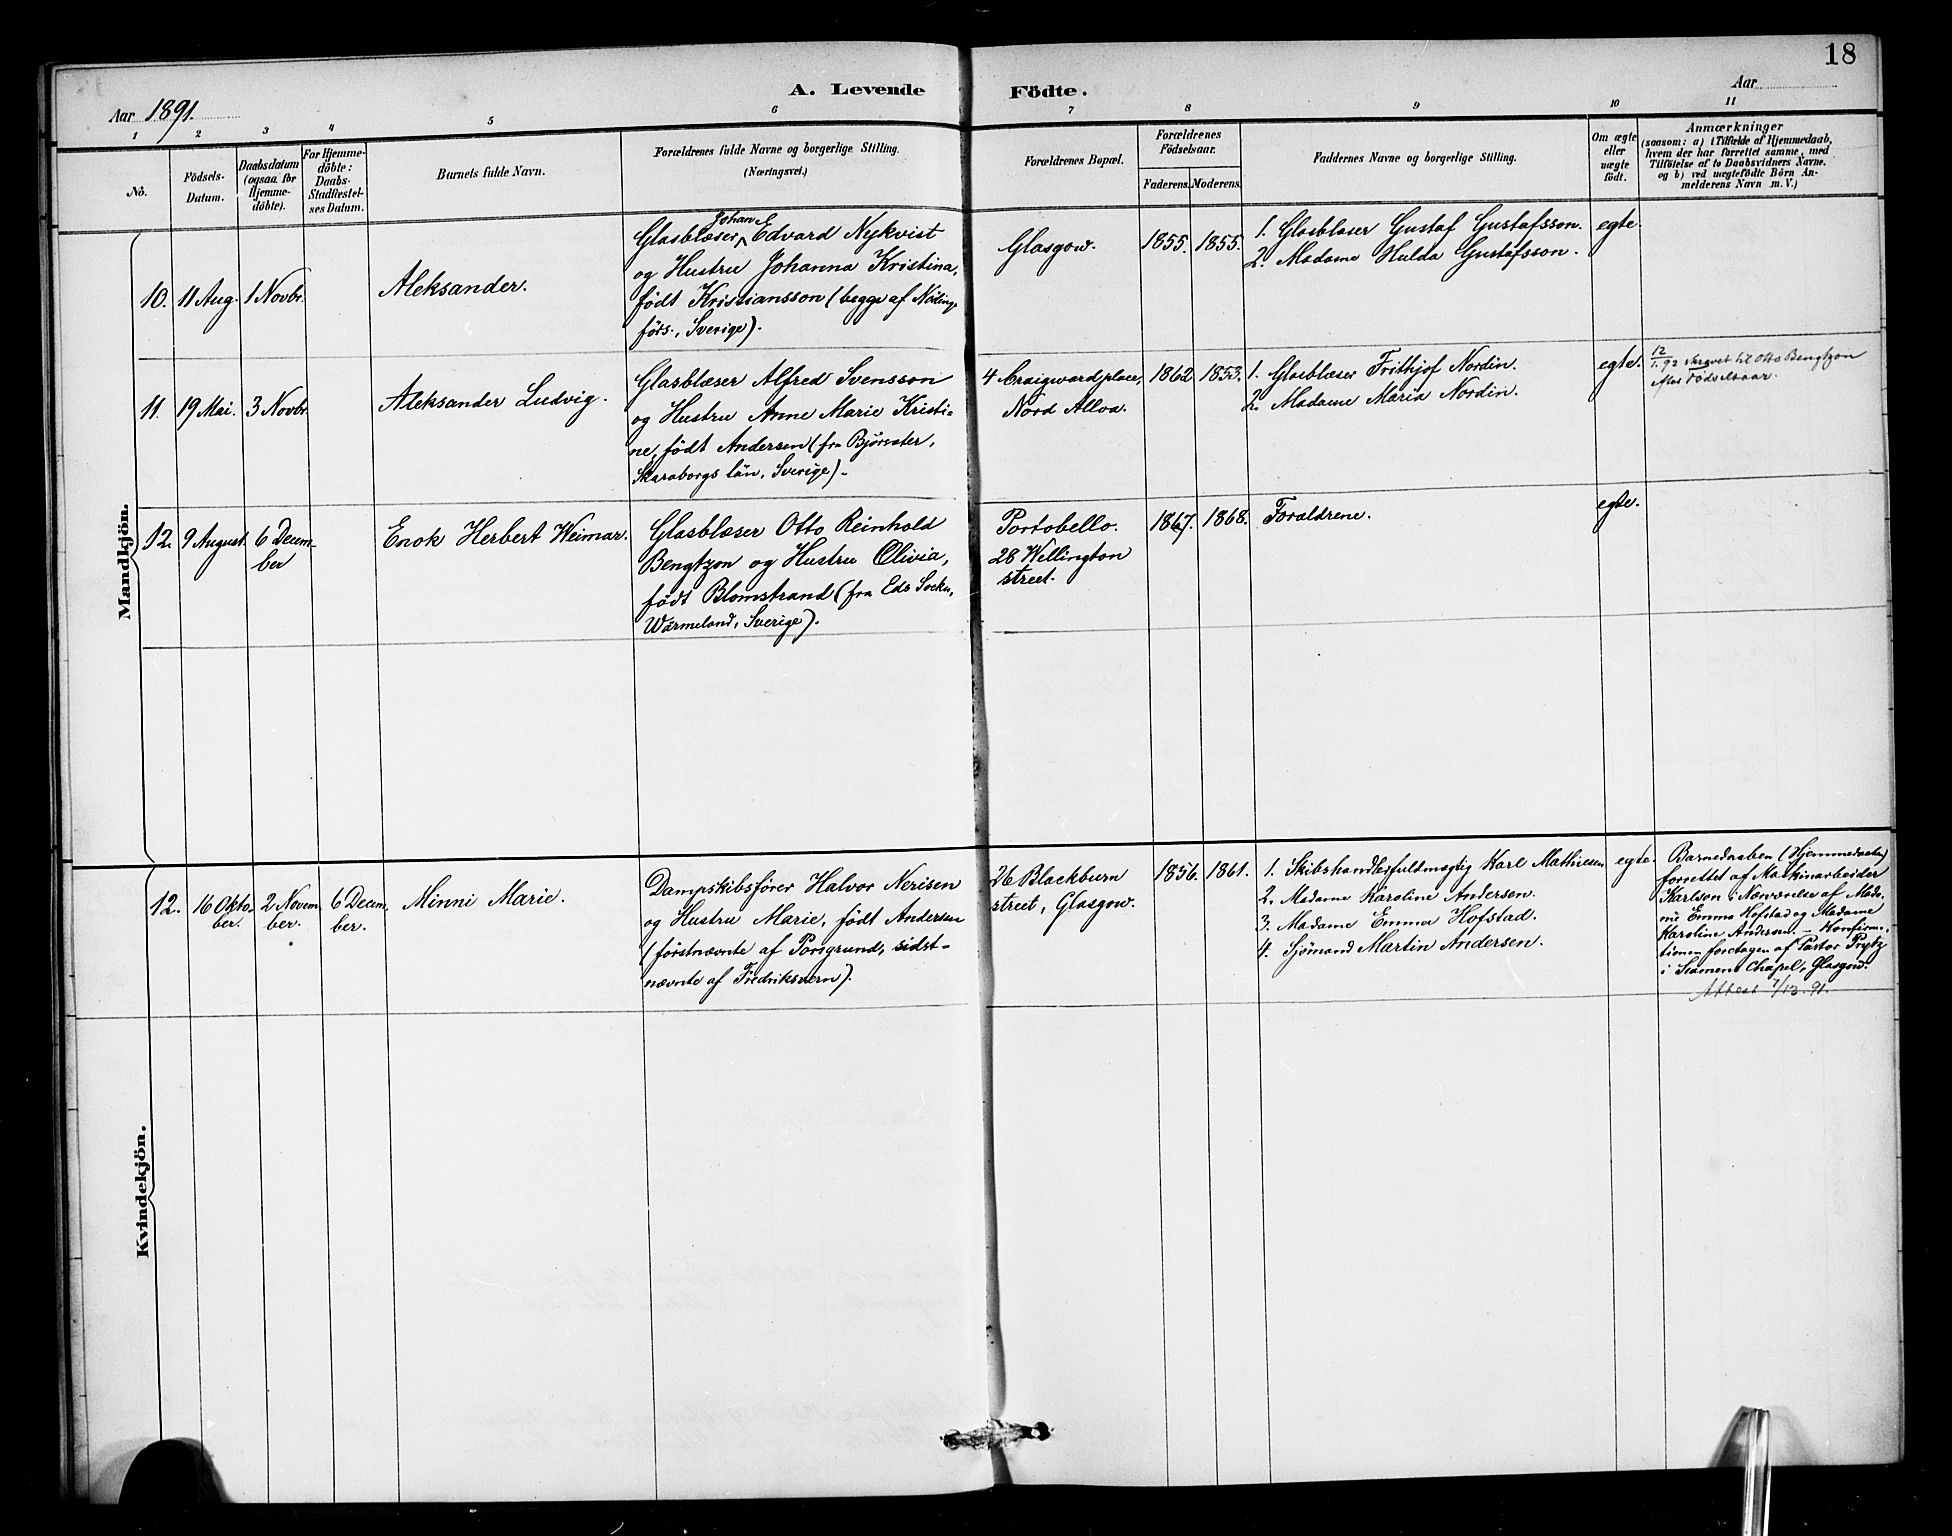 18
A. Levende Födte.
Aar 1891.
Aar
1 2 3 4 5 6 7 8 9 10 11
No.
Födsels-
Datum.
Daabsdatum
(ogsaa for
Hjemme-
döbte).
For Hjemme-
döbte:
Daabs-
Stadfæstel-
ses Datum.
Barnets fulde Navn.
Forældrenes fulde Navne og borgerlige Stilling.
(Næringsvei.)
Forældrenes Bopæl.
Forældrenes
Födselsaar.
Faderens. Moderens.
Faddernes Navne og borgerlige Stilling.
Om ægte
eller
uægte
födt.
Anmærkninger
(saasom: a) i Tilfælde af Hjemmedaab,
hvem der har forrettet samme, med
Tilföielse af to Daabsvidners Navne,
og b) ved uægtefödte Börn An-
melderens Navn m. V.)
Mandkjön.
10. 11 Aug. 1 Novbr.
Aleksander.
Johan
Glasblæser Edvard Nykvist
og Hustru Johanna Kristina,
født Kristiansson (begge af
förs., Sverige).
Glasgow.
1855. 1855.
1. Glasblæser Gustaf Gustafsson.
2. Madame Hulda Gustafsson.
egte.
11. 19 Mai. 3 Novbr.
Aleksander Ludvig.
Glasblæser Alfred Svensson
og Hustru Anne Marie Kristi-
ne, født Andersen (fra Bjørsater,
Skaraborgs län, Sverige).
4 Craigwardplace,
Nord Alloa.
1862 1853.
1. Glasblæser Frithjof Nordin.
2. Madame Maria Nordin.
egte.
12/1. 92 skrevet til Otto Bengtzon
efter Fødselsaar.
12. 9 August. 6 Decem-
ber
Enok Herbert Weimar.
Glasblæser Otto Reinhold
Bengtzon og Hustru Olivia,
født Blomstrand (fra Eds Sockn,
Wärmeland, Sverige).
Portobello.
28 Wellington
street.
1867. 1868.
Forældrene.
egte.
Kvindekjön.
12. 16 Okto-
ber.
2 Novem-
ber.
6 Decem-
ber.
Minni Marie.
Dampskibsfører Halvor Nerisen
og Hustru Marie, født Andersen
(førstnævnte af Porsgrund, sidst-
nævnte af Fredriksværn).
26 Blackburn
street, Glasgow.
1856. 1861.
1. Skibshandlerfuldmægtig Karl Mathiesen
2. Madame Karoline Andersen.
3. Madame Emma Hofstad.
4. Sjømand Martin Andersen.
egte.
Barnedaaben (Hjemmedaaben)
forrettet af Maskinarbeider
Karlson i Nærværelse af Mada-
me Emma Hofstad og Madame
Karoline Andersen. – Konfirma-
tionen foretagen af Pastor Prytz
i Seamens Chapel, Glasgow.
Attest 7/12. 91.